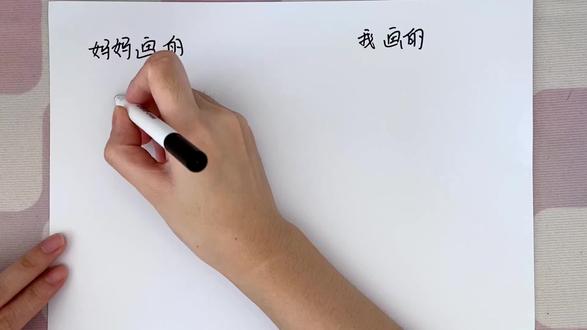 妈妈画的
我画的